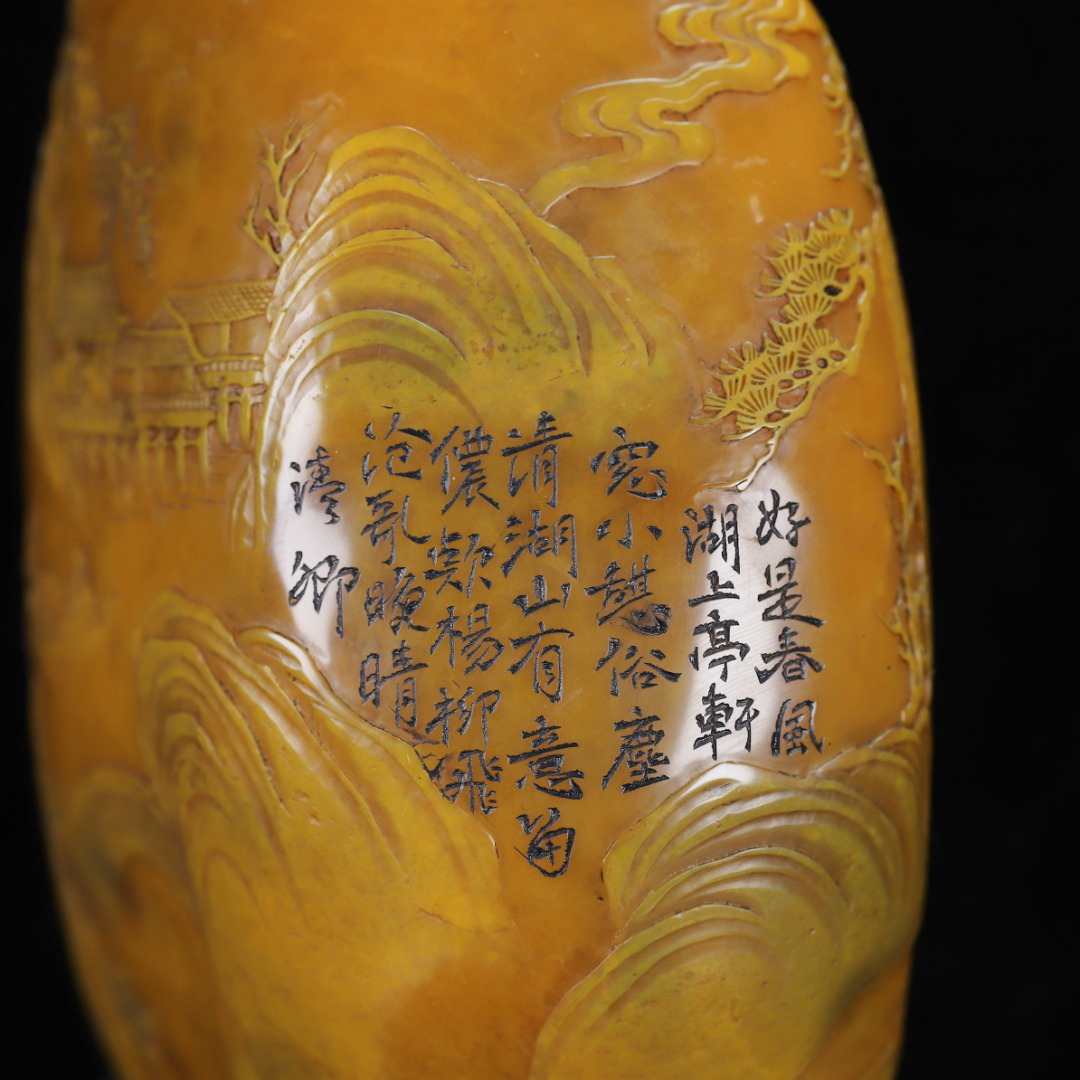 好是春風
湖上亭軒
窓小憇俗塵
清湖山有意留
儂款楊柳飛
沧晚晴
卿